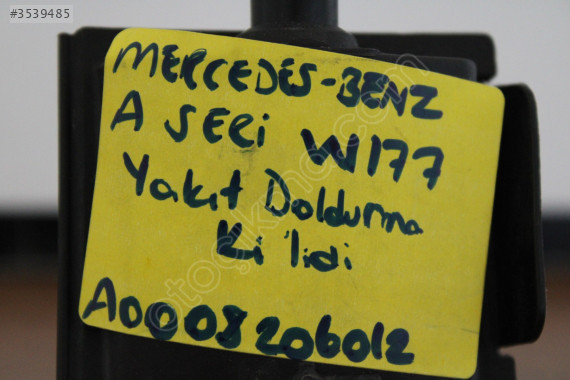 #3539485
MERCEDES-BENZ
A SERİ W177
Yakıt Doldurma
Kilidi
A0008206012